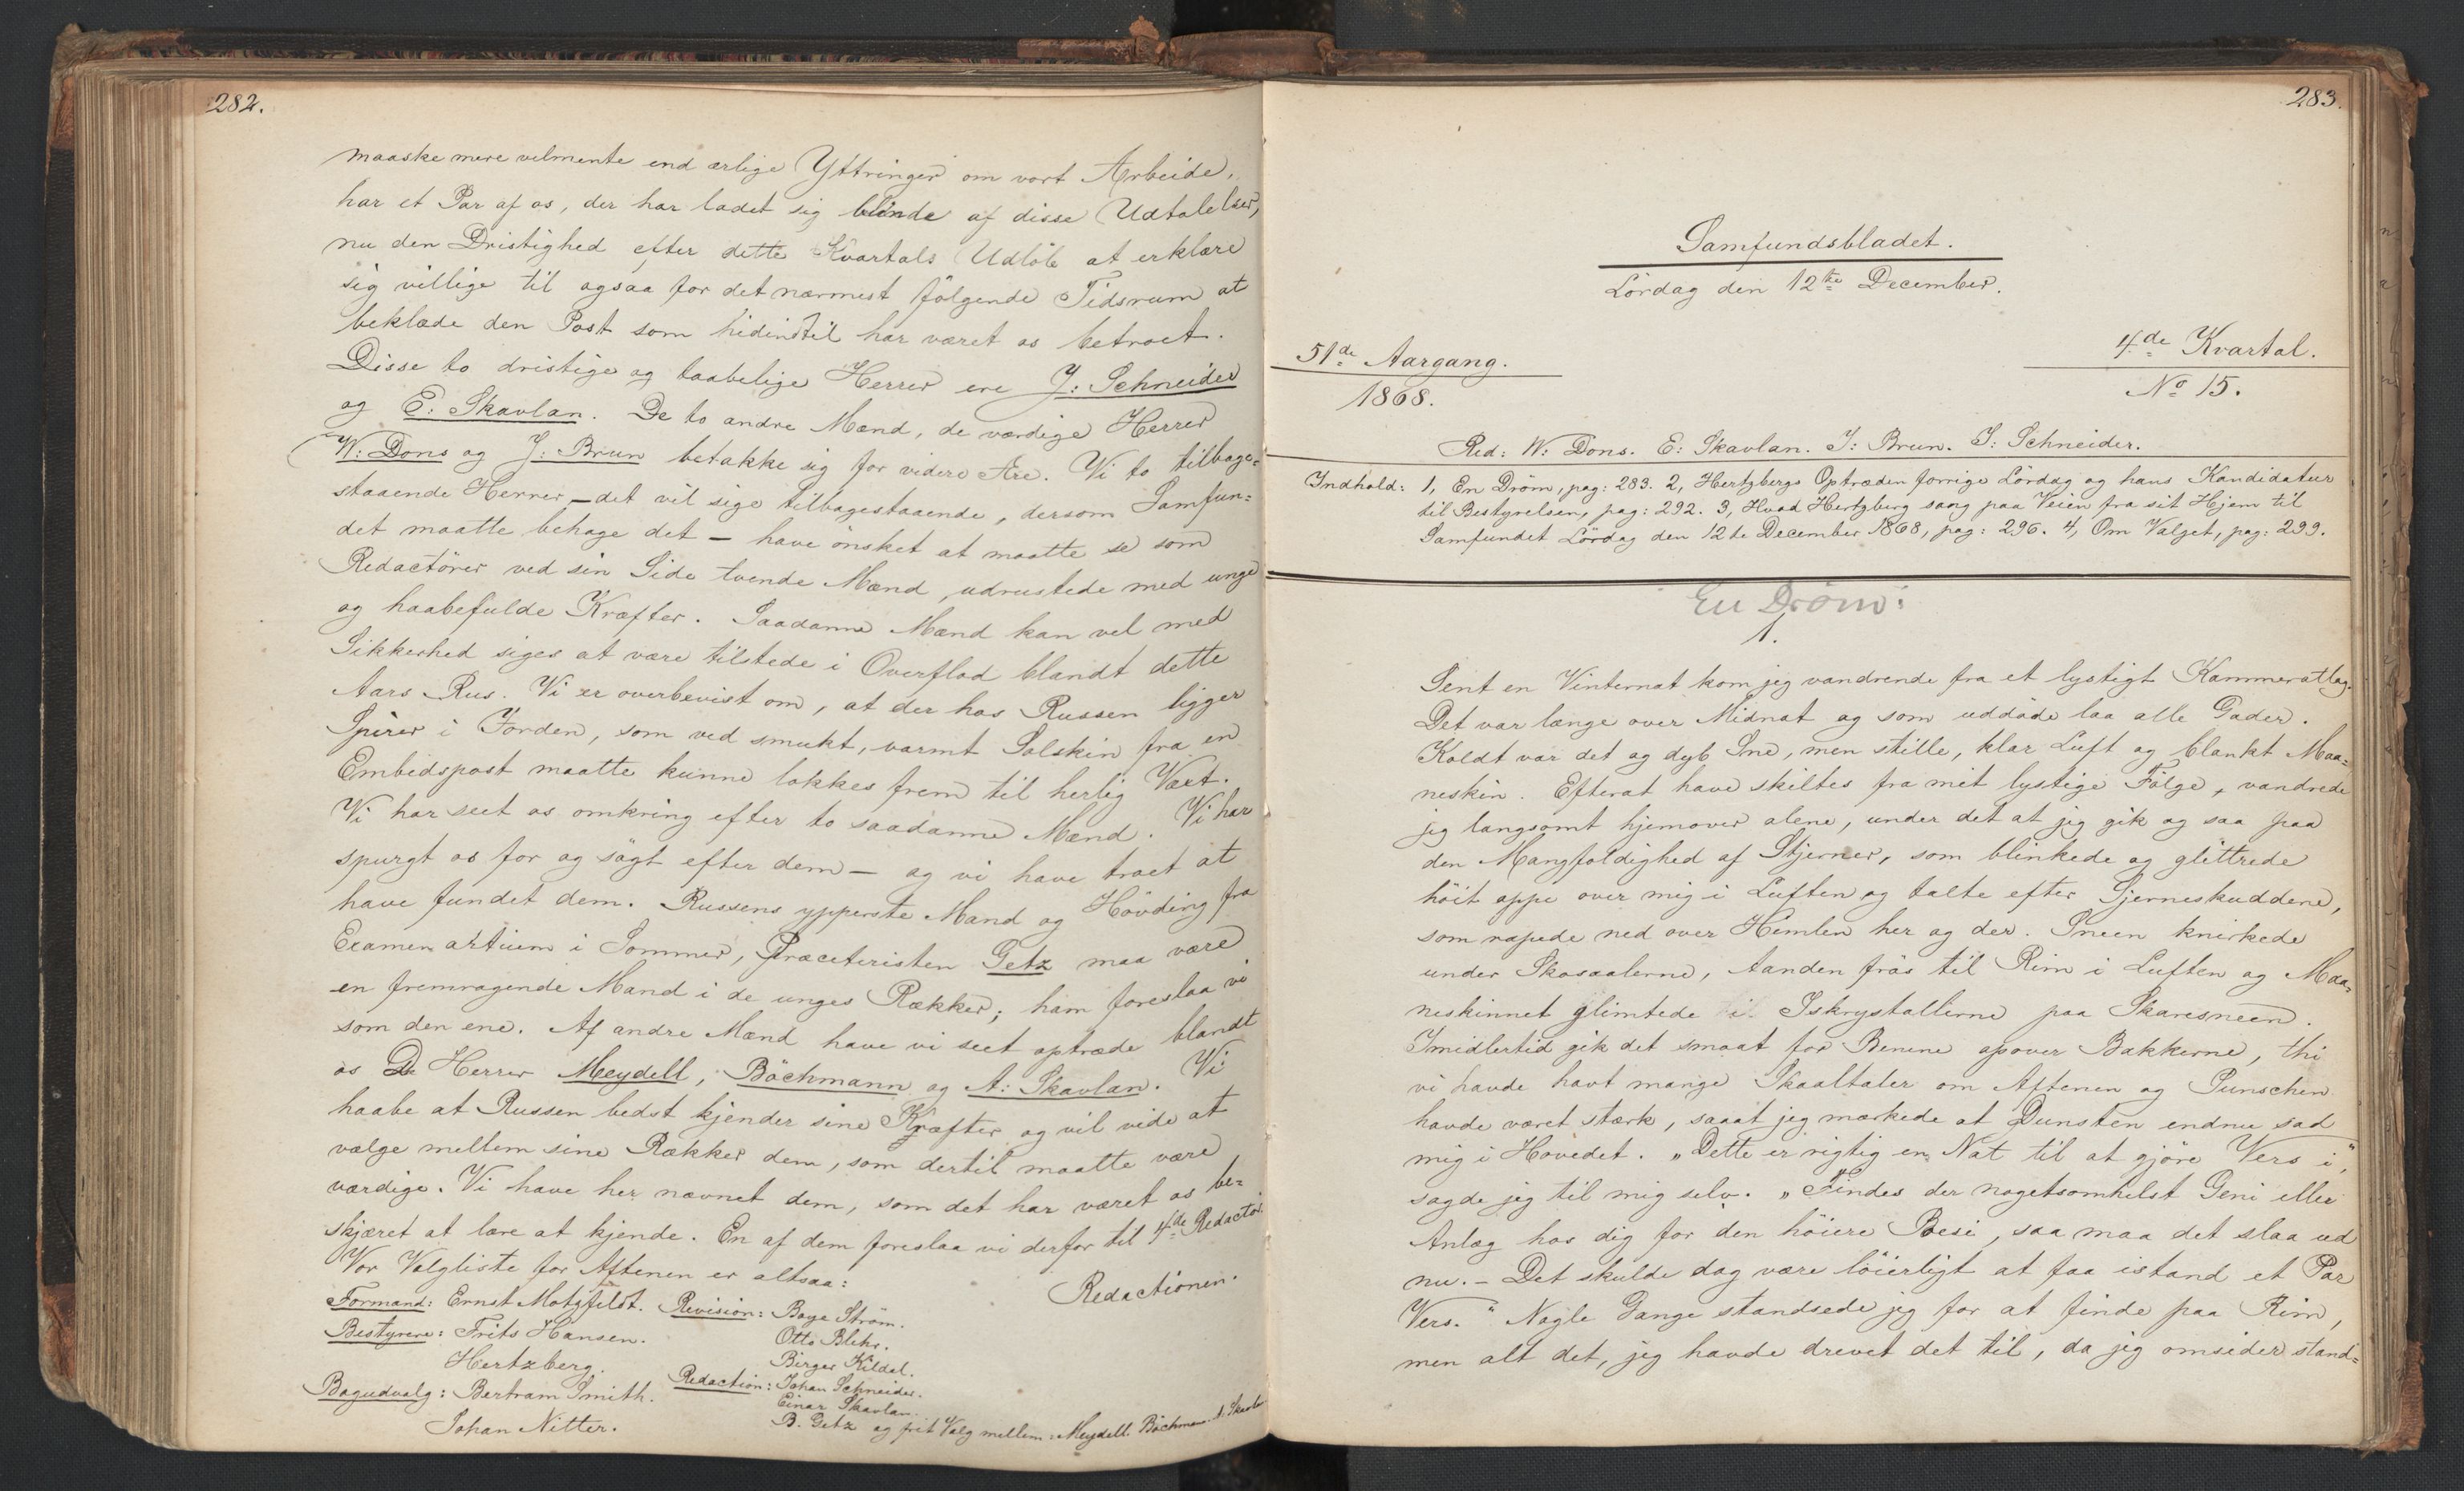 282.
maaske mere velmente end ærlige Yttringer om vort Arbeide,
har et Par af os, der har ladet sig blinde af disse Udtalelser,
nu den Dristighed efter dette Kvartals Udløb at erklære
sig villige til ogsaa for det nærmest følgende Tidsrum at
beklæde den Post som hidindtil har været os betroet.
Disse to dristige og taabelige Herrer ere J: Schneider
og E: Skavlan. De to andre Mænd, de værdige Herrer
W: Dons og J: Brun betakke sig for videre Ære. Vi to tilbage=
staaende Herrer – det vil sige tilbagestaaende, dersom Samfun=
det maatte behage det – have ønsket at maatte se som
Redactører ved sin Side tvende Mænd, udrustede med unge
og haabefulde Kræfter. Saadanne Mænd kan vel med
Sikkerhed siges at være tilstede i Overflod blandt dette
Aars Rus. Vi er overbevist om, at der hos Russen ligger
Spirer i Jorden, som ved smukt, varmt Solskin fra en
Embedspost maatte kunne lokkes frem til herlig Væxt.
Vi har seet os omkring efter to saadanne Mænd. Vi har
spurgt os for og søgt efter dem – og vi have troet at
have fundet dem. Russens ypperste Mand og Høvding fra
Examen artium i Sommer, Præceteristen Getz maa være
en fremragende Mand i de unges Rækker; ham foreslaa vi
som den ene. Af andre Mænd have vi seet optræde blandt
os De Herrer Meydell, Böchmann og A: Skavlan. Vi
haabe at Russen bedst kjender sine Kræfter og vil vide at
vælge mellem sine Rækker dem, som dertil maatte være
værdige. Vi have her nævnet dem, som det har været os be=
skjæret at lære at kjende. En af dem foreslaa vi derfor til 4de Redactør.
Vor Valgliste for Aftenen er altsaa:
Redactionen.
Formand: Ernst Motzfeldt. Revision: Boye Strøm.
Bestyrere: Frits Hansen. Otto Blehr.
Hertzberg. Birger Kildal.
Bogudvalg: Bertram Smith. Redaction: Johan Schneider.
Einar Skavlan.
Johan Nitter. B. Getz og frit Valg mellem: Meydell. Böchmann. A. Skavlan
283.
Samfundsbladet.
Lørdag den 12te December.
51de Aargang. 4de Kvartal.
1868. No 15.
Red: W: Dons. E: Skavlan. J: Brun. J: Schneider.
Indhold: 1, En Drøm, pag: 283. 2, Hertzbergs Optræden forrige Lørdag og hans Kandidatur
til Bestyrelsen, pag: 292. 3, Hvad Hertzberg sang paa Veien fra sit Hjem til
Samfundet Lørdag den 12te December 1868, pag: 296. 4, Om Valget, pag: 299.
En Drøm:
1.
Sent en Vinternat kom jeg vandrende fra et lystigt Kammeratlag.
Det var længe over Midnat og som uddøde laa alle Gader.
Koldt var det og dyb Sne, men stille, klar Luft og blankt Maa=
neskin. Efterat have skiltes fra mit lystige Følge, vandrede
jeg langsomt hjemover alene, under det at jeg gik og saa paa
den Mangfoldighed af Stjerner, som blinkede og glittrede
höit oppe over mig i Luften og talte efter Sjerneskuddene,
som rapede ned over Himlen her og der. Sneen knirkede
under Skosaalerne, Aanden frøs til Rim i Luften og Maa=
neskinnet glimtede i Iskrystallerne paa Skaresneen.
Imidlertid gik det smaat for Benene opover Bakkerne, thi
vi havde havt mange Skaaltaler om Aftenen og Punschen
havde været stærk, saaat jeg mærkede at Dunsten endnu sad
mig i Hovedet. „Dette er rigtig en Nat til at gjøre Vers i,"
sagde jeg til mig selv. „Findes der nogetsomhelst Geni eller
Anlæg hos dig for den höiere Poesi, saa maa det slaa ud
nu. – Det skulde dog være löierligt at faa istand et Par
Vers." Nogle Gange standsede jeg for at finde paa Rim,
men alt det, jeg havde drevet det til, da jeg omsider stand=